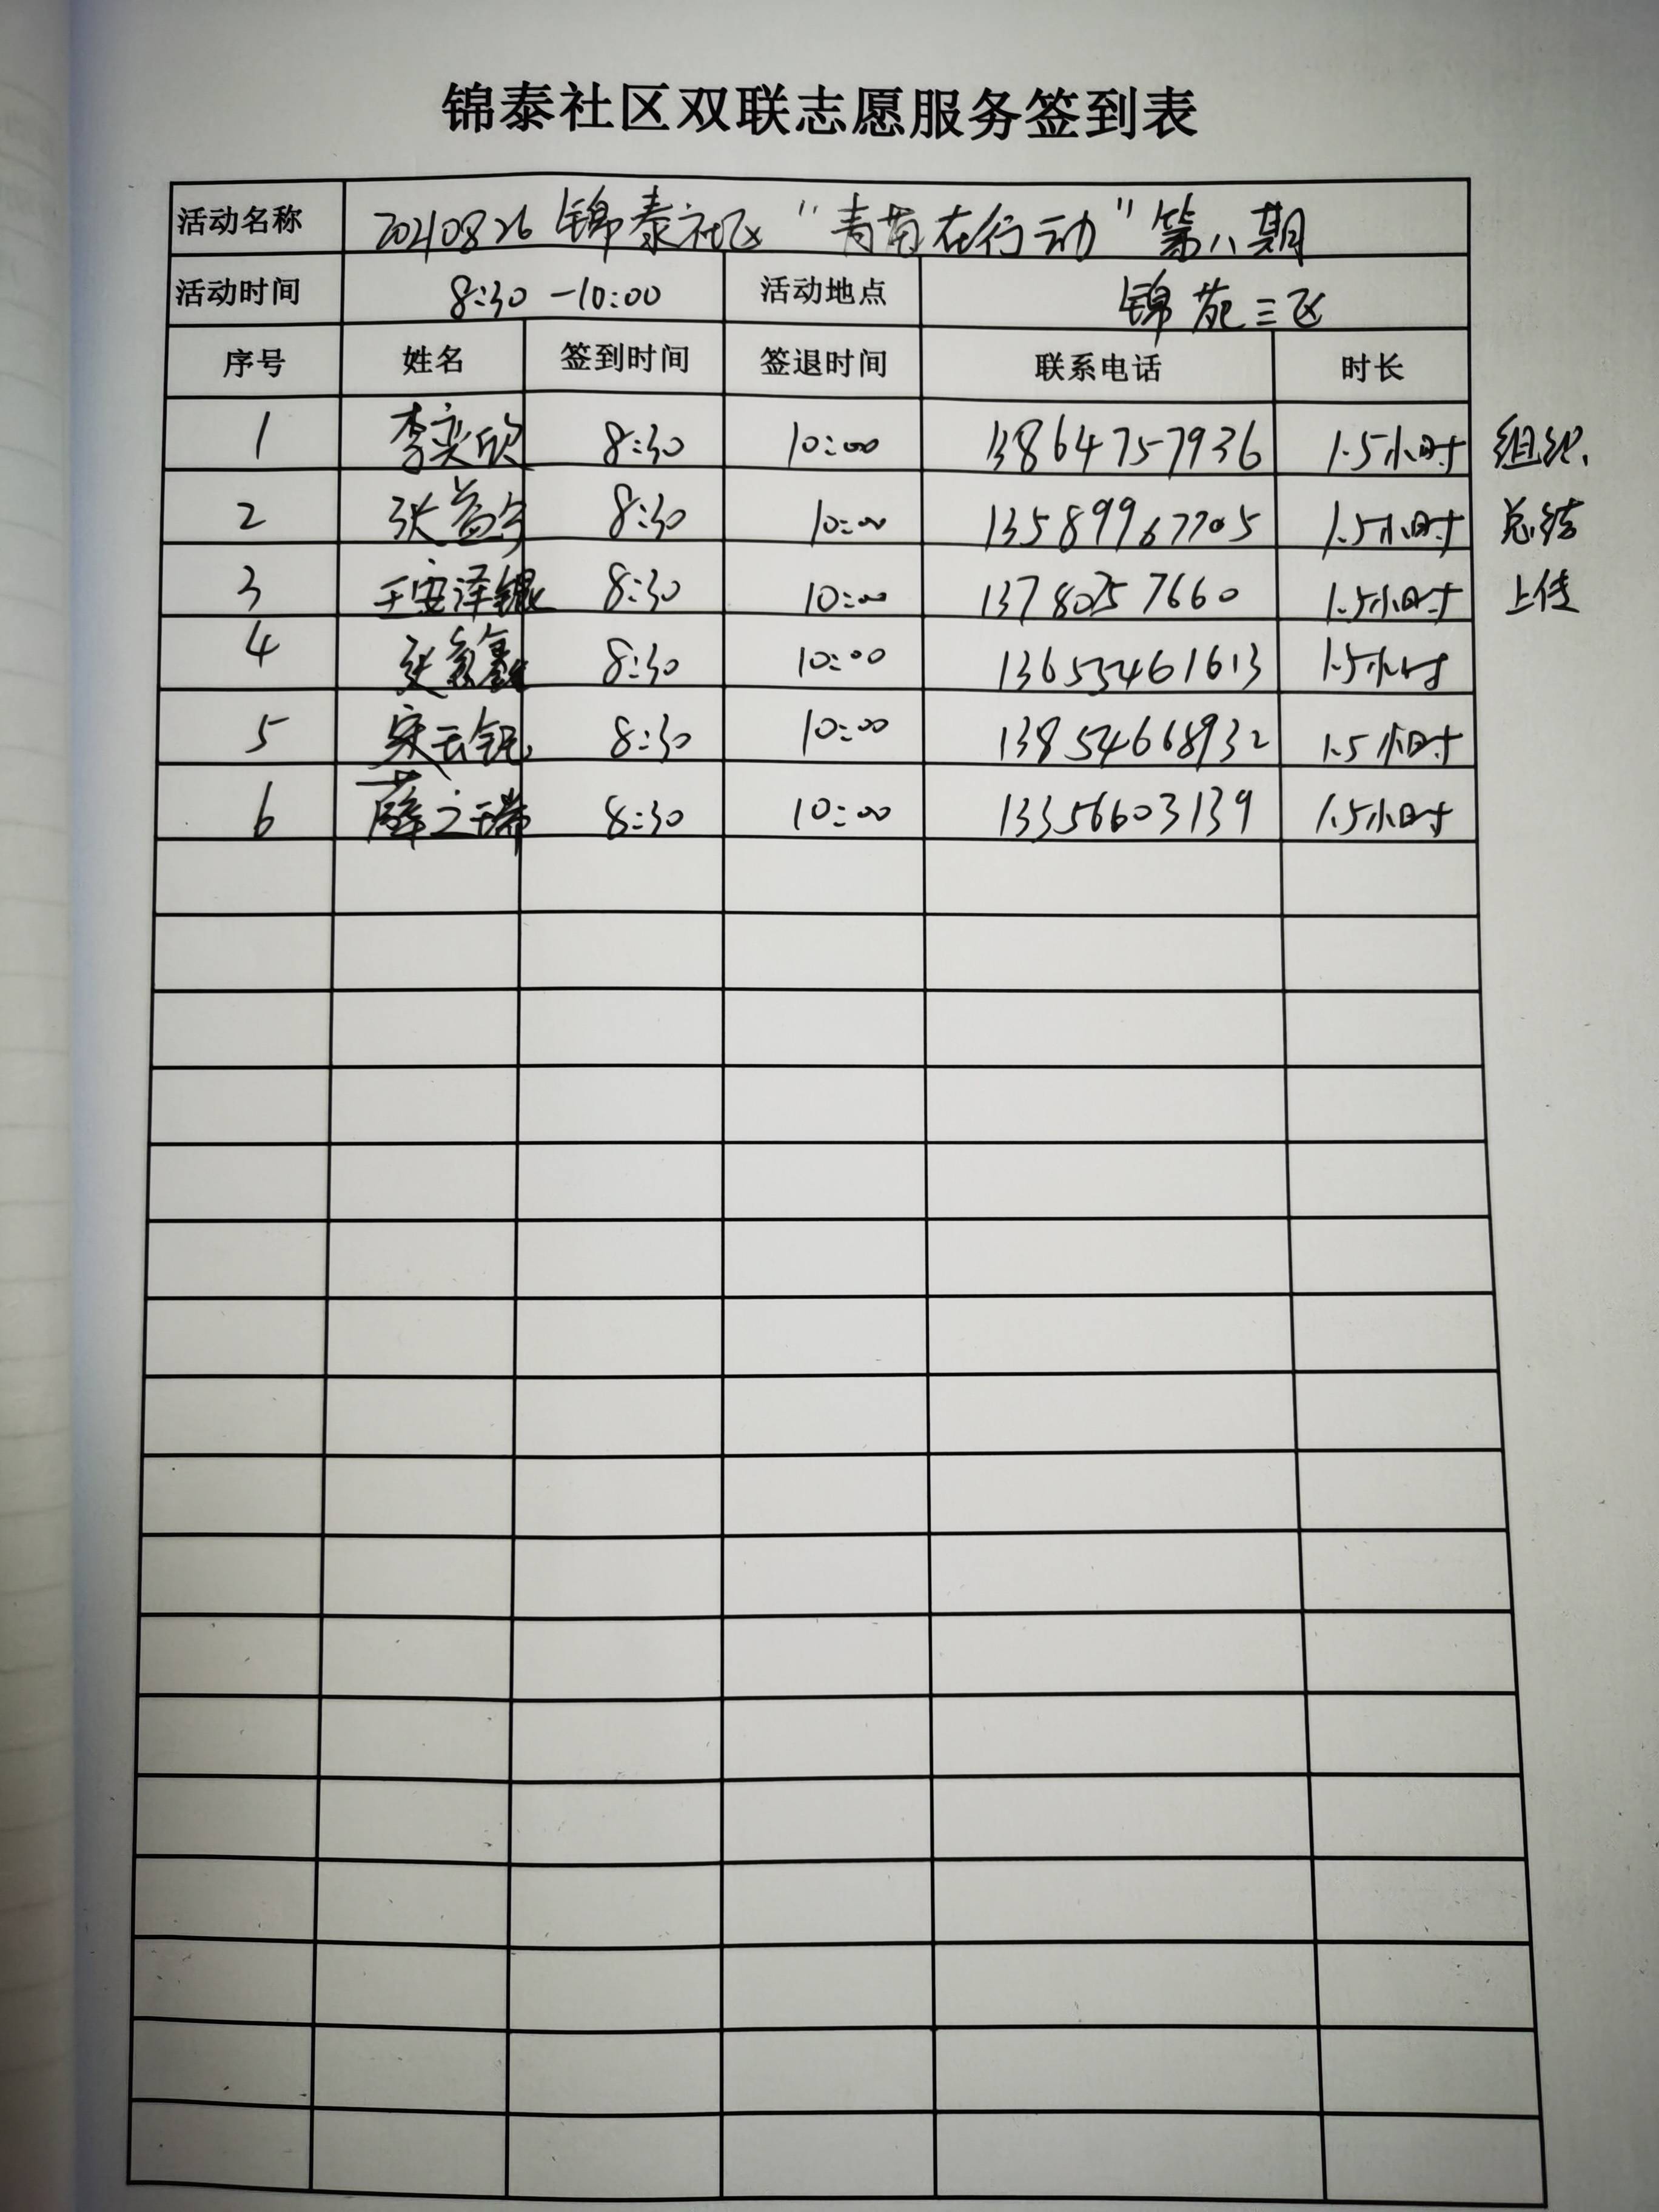 锦泰社区双联志愿服务签到表
活动名称 20210826 锦泰社区“青苗在行动”第八期
活动时间 8:30-10:00 活动地点 锦苑三区
序号 姓名 签到时间 签退时间 联系电话 时长
1 李奕欣 8:30 10:00 13864757936 1.5小时 组织、
2 张益宁 8:30 10:00 13589967705 1.5小时 总结
3 王安泽锟 8:30 10:00 13780757660 1.5小时 上传
4 8:30 10:00 13655461613 1.5小时
5 宋云锟 8:30 10:00 13854668932 1.5小时
6 薛之瑞 8:30 10:00 13356603139 1.5小时